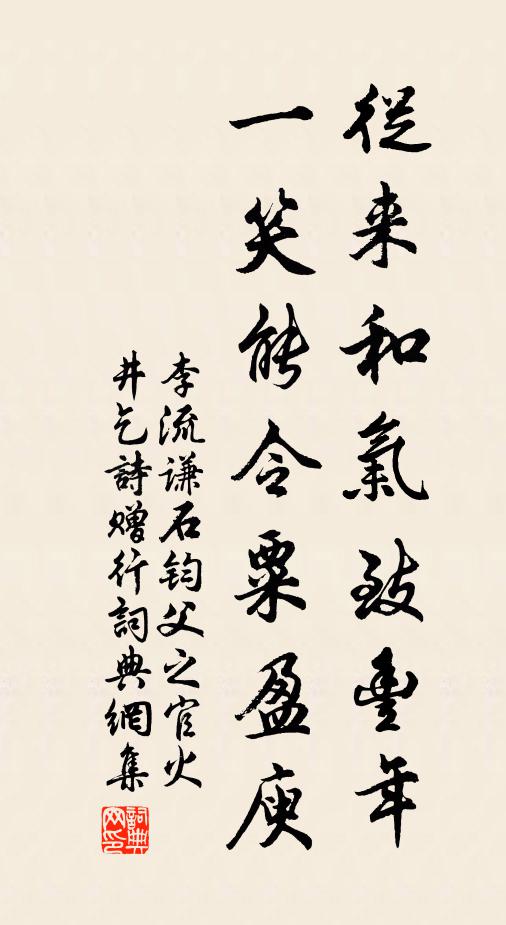 從来和氣致豐年
一笑能令粟盈庾
李流謙石鈞父之官火
井乞詩贈行詞典網集
詞典
网印